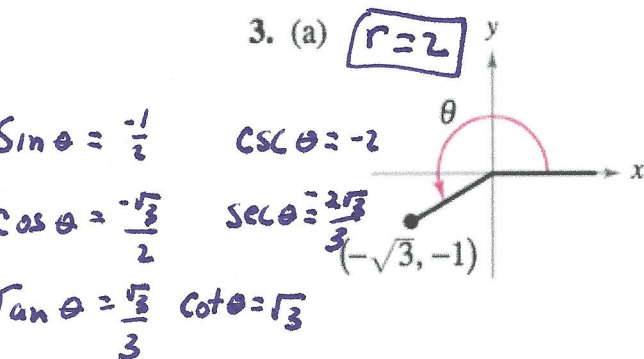 3. (a) r=2 y
θ
Sin θ = -1/2 csc θ = -2
x
Cos θ = -√3/2 sec θ = -2√3/3
(-√3, -1)
Tan θ = √3/3 Cot θ = √3